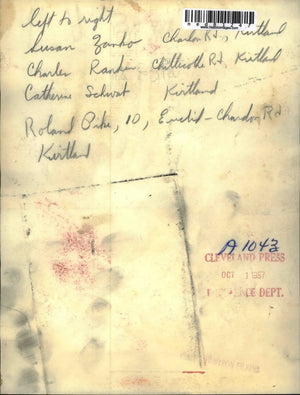 left to right
Susan Zambo Chardon Rd., Kirtland
Charles Rankin Chillicothe Rd, Kirtland
Catherine Schwat Kirtland
Roland Pike, 10, Euclid-Chardon Rd
Kirtland
A1043
CLEVELAND PRESS
OCT 1 1957
DEPT.